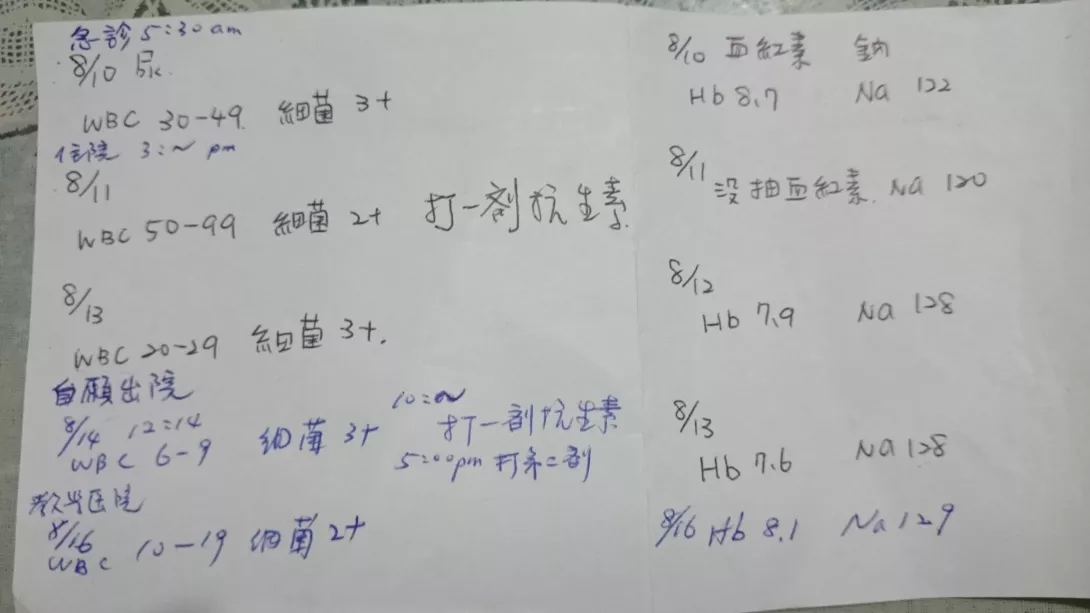 急診 5:30 am
8/10 尿.
WBC 30-49. 細菌 3+
住院 3:~ pm
8/11
WBC 50-99 細菌 2+ 打一劑抗生素.
8/13
WBC 20-29 細菌 3+.
自願出院
8/14 12:14
WBC 6-9 細菌 3+
10:~
打一劑抗生素
5:00pm 打第二劑
醫院
8/16
WBC 10-19 細菌 2+
8/10 血紅素 鈉
Hb 8.7 Na 122
8/11 沒抽血紅素. Na 120
8/12
Hb 7.9 Na 128
8/13
Hb 7.6 Na 128
8/16 Hb 8.1 Na 129